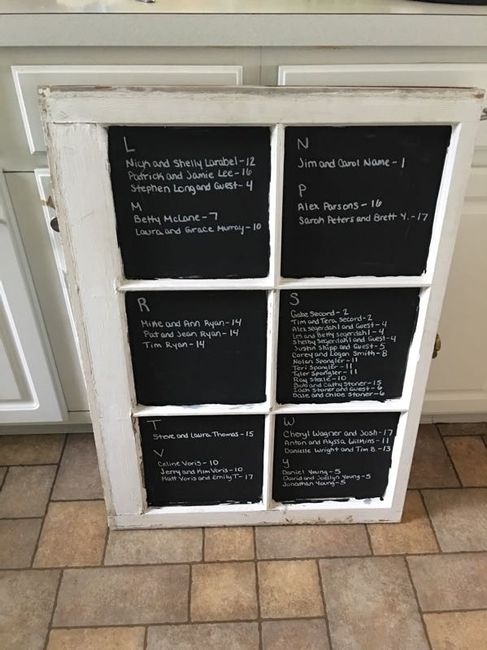 L
Nick and Shelly Larabel-12
Patrick and Jamie Lee-16
Stephen Long and Guest-4
M
Betty McLane-7
Laura and Grace Murray-10
N
Jim and Carol Name-1
P
Alex Parsons-16
Sarah Peters and Brett Y.-17
R
Mike and Ann Ryan-14
Pat and Jean Ryan-14
Tim Ryan-14
S
Gabe Secord-2
Tim and Tera Secord-2
Alex Segerdahl and Guest-4
Les and Betty Segerdahl-4
Shelby Segerdahl and Guest-4
Justin Slupp and Guest-5
Corey and Logan Smith-8
Nolan Spangler-11
Teri Spangler-11
Tyler Spangler-11
Ray Steile-10
Bob and Cathy Stoner-15
Zach Stoner and Guest-6
Dale and Chloe Stoner-6
T
Steve and Laura Thomas-15
V
Celine Voris-10
Jerry and Kim Voris-10
Matt Voris and Emily T-17
W
Cheryl Wagner and Josh-17
Anton and Alyssa Wilkins-11
Danielle Wright and Tim B.-13
Y
Daniel Young-5
David and Joellyn Young-5
Jonathan Young-5